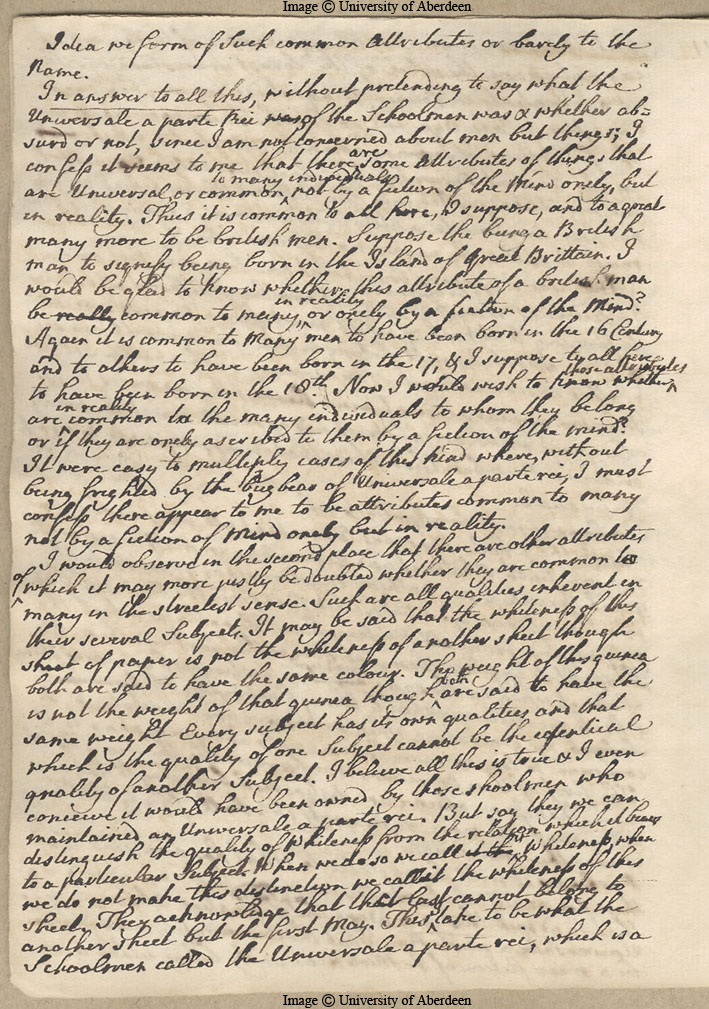 Image © University of Aberdeen
Idea we form of Such common Attributes or barely to the
Name.
In answer to all this, without pretending to say what the
Universale a parte Rei was of the Schoolmen was & whether ab=
surd or not, since I am not concerned about men but things; I
confess it seems to me that there are Some Attributes of things that
are Universal or common to many individuals, not by a fiction of the Mind onely, but
in reality. Thus it is common to all here, I suppose, and to a great
many more to be british men. Suppose the being a British
man to signify being born in the Island of Great Brittain. I
would be glad to know whether this attribute of a british man
be really common to many in reality, or onely by a fiction of the Mind?
Again it is common to Many men to have been born in the 16 Century
and to others to have been born in the 17, & I suppose to all here
to have been born in the 18th. Now I would wish to know whether those attributes
are in reality common to the many individuals to whom they belong
or if they are onely ascribed to them by a fiction of the mind?
It were easy to multiply cases of this kind where, without
being frighted by the bugbear of Universale a parte rei, I must
confess there appear to me to be attributes common to many
not by a fiction of Mind onely but in reality.
I would observe in the second place that there are other attributes
of which it may more justly be doubted whether they are common to
many in the strictest sense. Such are all qualities inherent in
their several Subjects. It may be said that the whiteness of this
sheet of paper is not the whiteness of another sheet though
both are said to have the same colour. The weight of this guinea
is not the weight of that guinea though both are said to have the
same weight Every subject has its own qualities and that
which is the quality of one Subject cannot be the identical
quality of another Subject. I believe all this is true & I even
conceive it would have been owned by those shoolmen who
maintained an Universale a parte rei. But say they we can
distinguish the quality of Whiteness from the relation which it bears
to a particular Subject. When we do so we call it Whiteness, when
we do not make this distinction we call it the whiteness of this
sheet. They acknowledge that that last cannot belong to
another sheet but the first may. This I take to be what the
Schoolmen called the Universale a parte rei, which is a
Image © University of Aberdeen